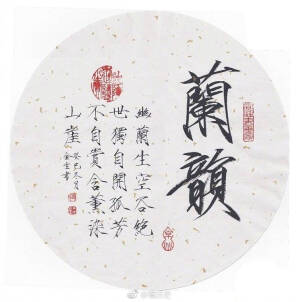 蘭韻
幽蘭生空谷絕
世獨自開孤芳
不自貴含薰染
山崖
癸巳冬月
金生書